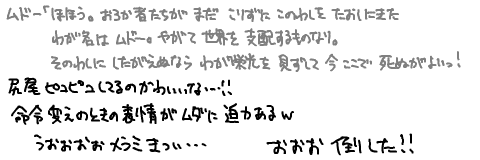 ムドー「ほほう。おろか者たちが まだ こりずに このわしを たおしにきた
わが名は ムドー。やがて 世界を 支配するものなり。
そのわしに したがえぬなら わが栄光を 見ずして 今ここで 死ぬがよいっ!
尻尾ピュピュしてるのかわいいな…!!
命令変えのときの表情がムダに迫力あるw
うおおおお メラミきつい… おおお 倒した!!